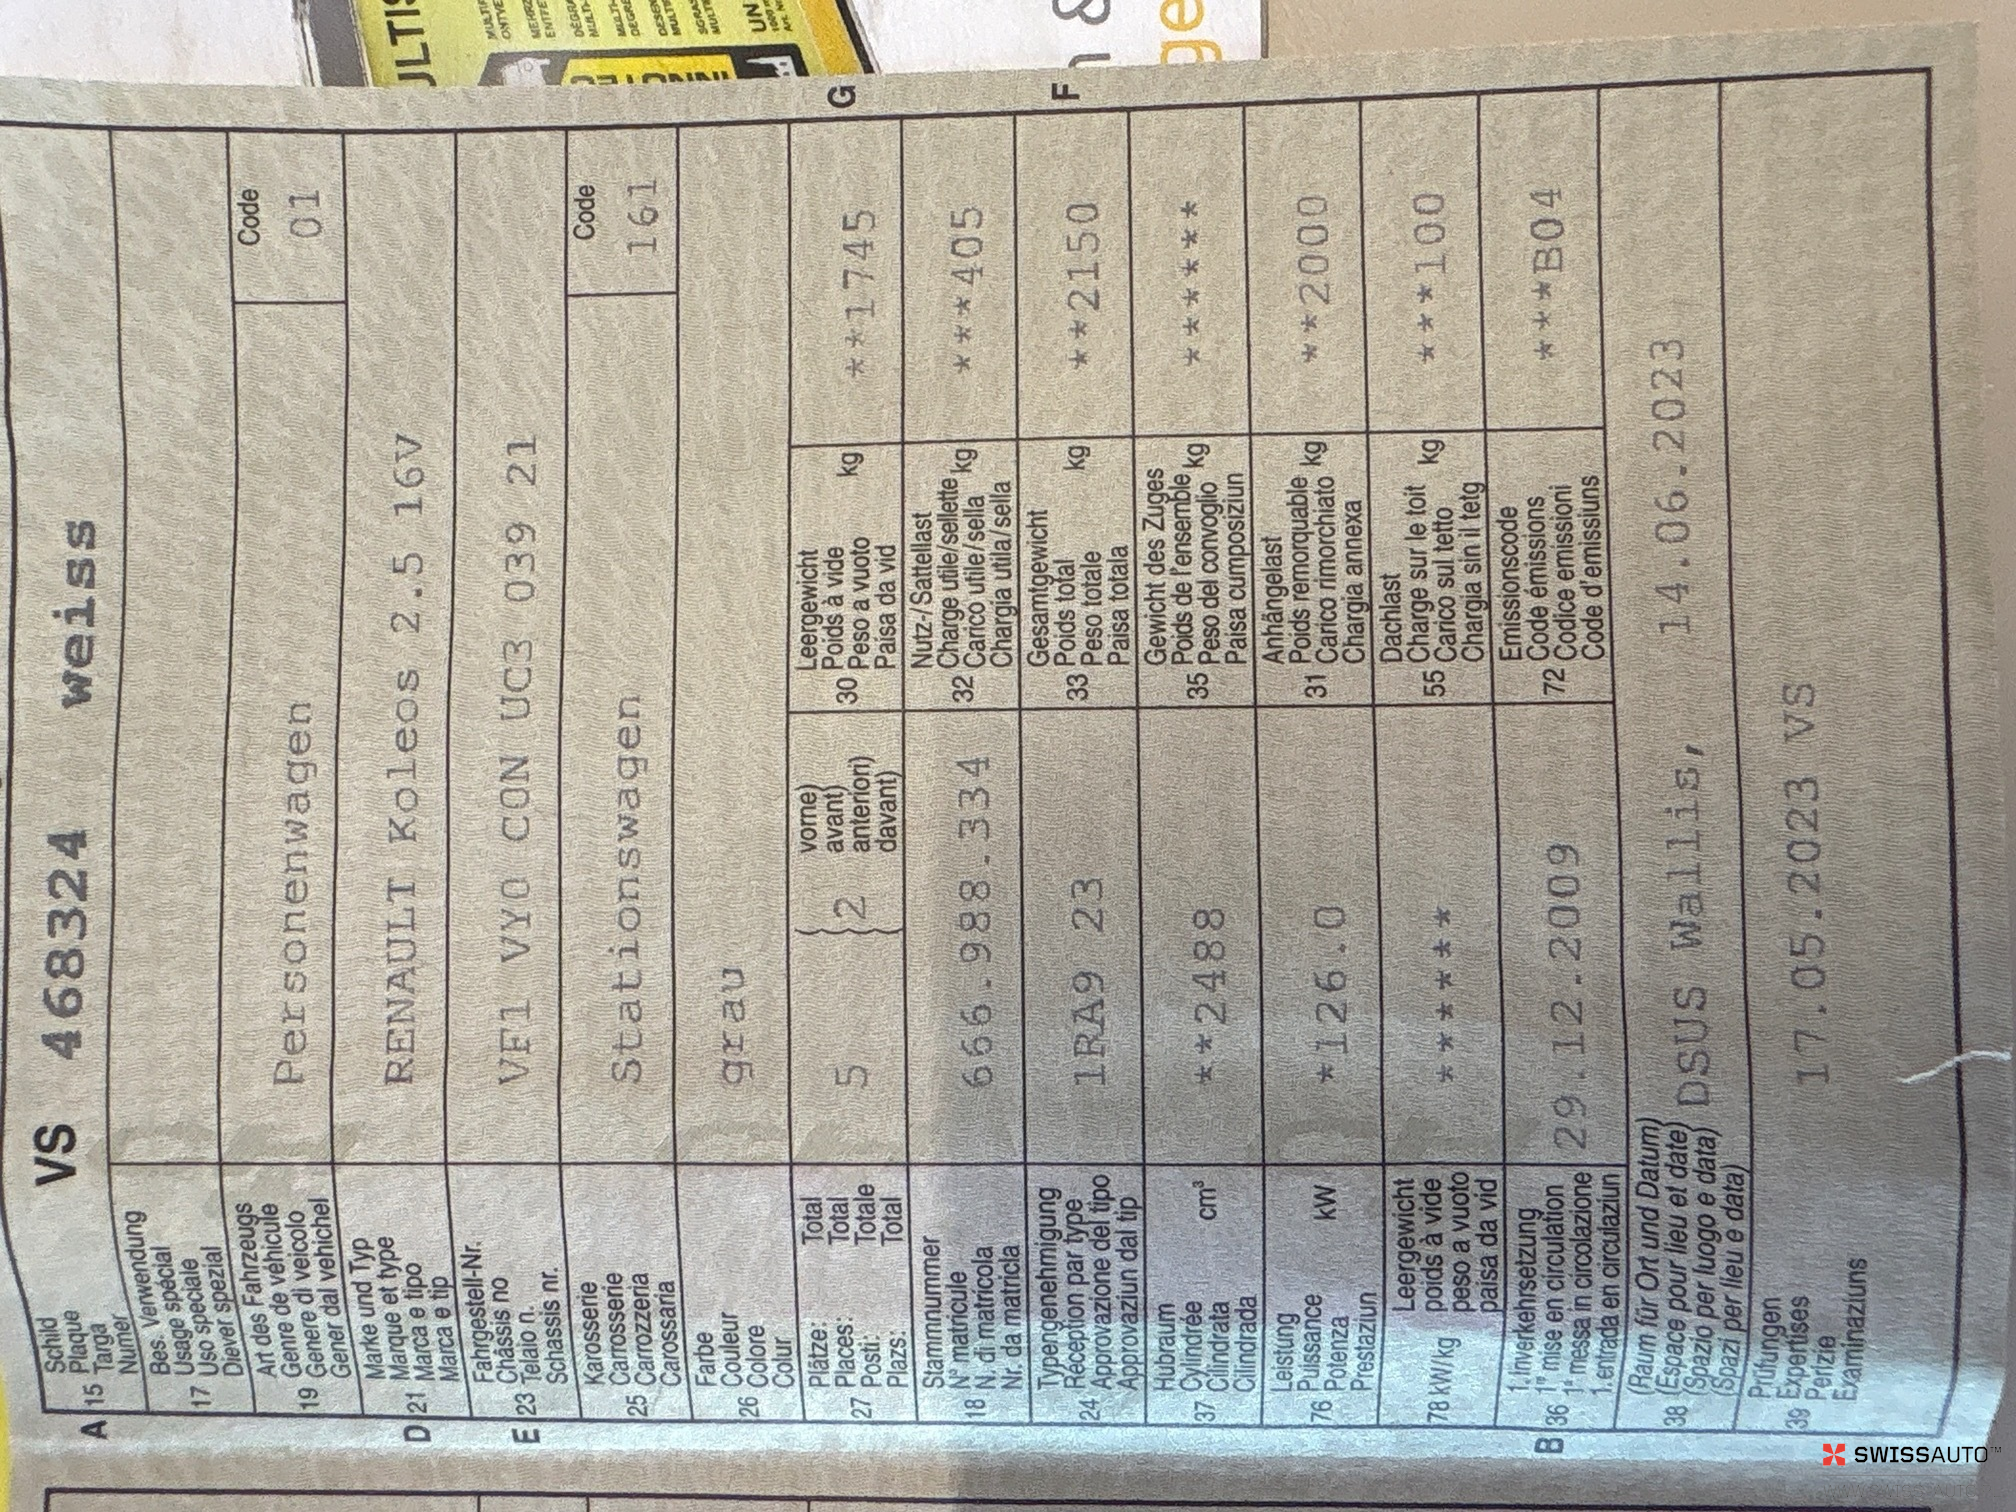 A
15
Schild
Plaque
Targa
Numer
VS 468324 weiss
17
Bes. Verwendung
Usage spécial
Uso speciale
Diever spezial
19
Art des Fahrzeugs
Genre de véhicule
Genere di veicolo
Gener dal vehichel
Personenwagen
Code
01
D
21
Marke und Typ
Marque et type
Marca e tipo
Marca e tip
RENAULT Koleos 2.5 16V
E
23
Fahrgestell-Nr.
Châssis no
Telaio n.
Schassis nr.
VF1 VY0 C0N UC3 039 21
25
Karosserie
Carrosserie
Carrozzeria
Carossaria
Stationswagen
Code
161
26
Farbe
Couleur
Colore
Colur
grau
27
Plätze: Total
Places: Total
Posti: Totale
Plazs: Total
5
2
vorne)
avant)
anteriori)
davant)
30
Leergewicht
Poids à vide
Peso a vuoto kg
Paisa da vid
**1745
G
18
Stammnummer
N° matricule
N. di matricola
Nr. da matricla
666.988.334
32
Nutz-/Sattellast
Charge utile/sellette
Carico utile/sella kg
Chargia utila/sella
***405
24
Typengenehmigung
Réception par type
Approvazione del tipo
Approvaziun dal tip
1RA9 23
33
Gesamtgewicht
Poids total
Peso totale kg
Paisa totala
**2150
F
37
Hubraum
Cylindrée
Cilindrata cm³
Cilindrada
**2488
35
Gewicht des Zuges
Poids de l'ensemble
Peso del convoglio kg
Paisa cumposiziun
******
76
Leistung
Puissance
Potenza kW
Prestaziun
*126.0
31
Anhängelast
Poids remorquable
Carico rimorchiato kg
Chargia annexa
**2000
78 kW/kg
Leergewicht
poids à vide
peso a vuoto
paisa da vid
******
55
Dachlast
Charge sur le toit
Carico sul tetto kg
Chargia sin il tetg
***100
B
36
1. Inverkehrsetzung
1re mise en circulation
1a messa in circolazione
1. entrada en circulaziun
29.12.2009
72
Emissionscode
Code émissions
Codice emissioni
Code d'emissiuns
***B04
38
(Raum für Ort und Datum)
(Espace pour lieu et date)
(Spazio per luogo e data)
(Spazi per lieu e data)
DSUS Wallis, 14.06.2023
39
Prüfungen
Expertises
Perizie
Examinaziuns
17.05.2023 VS
SWISSAUTO™